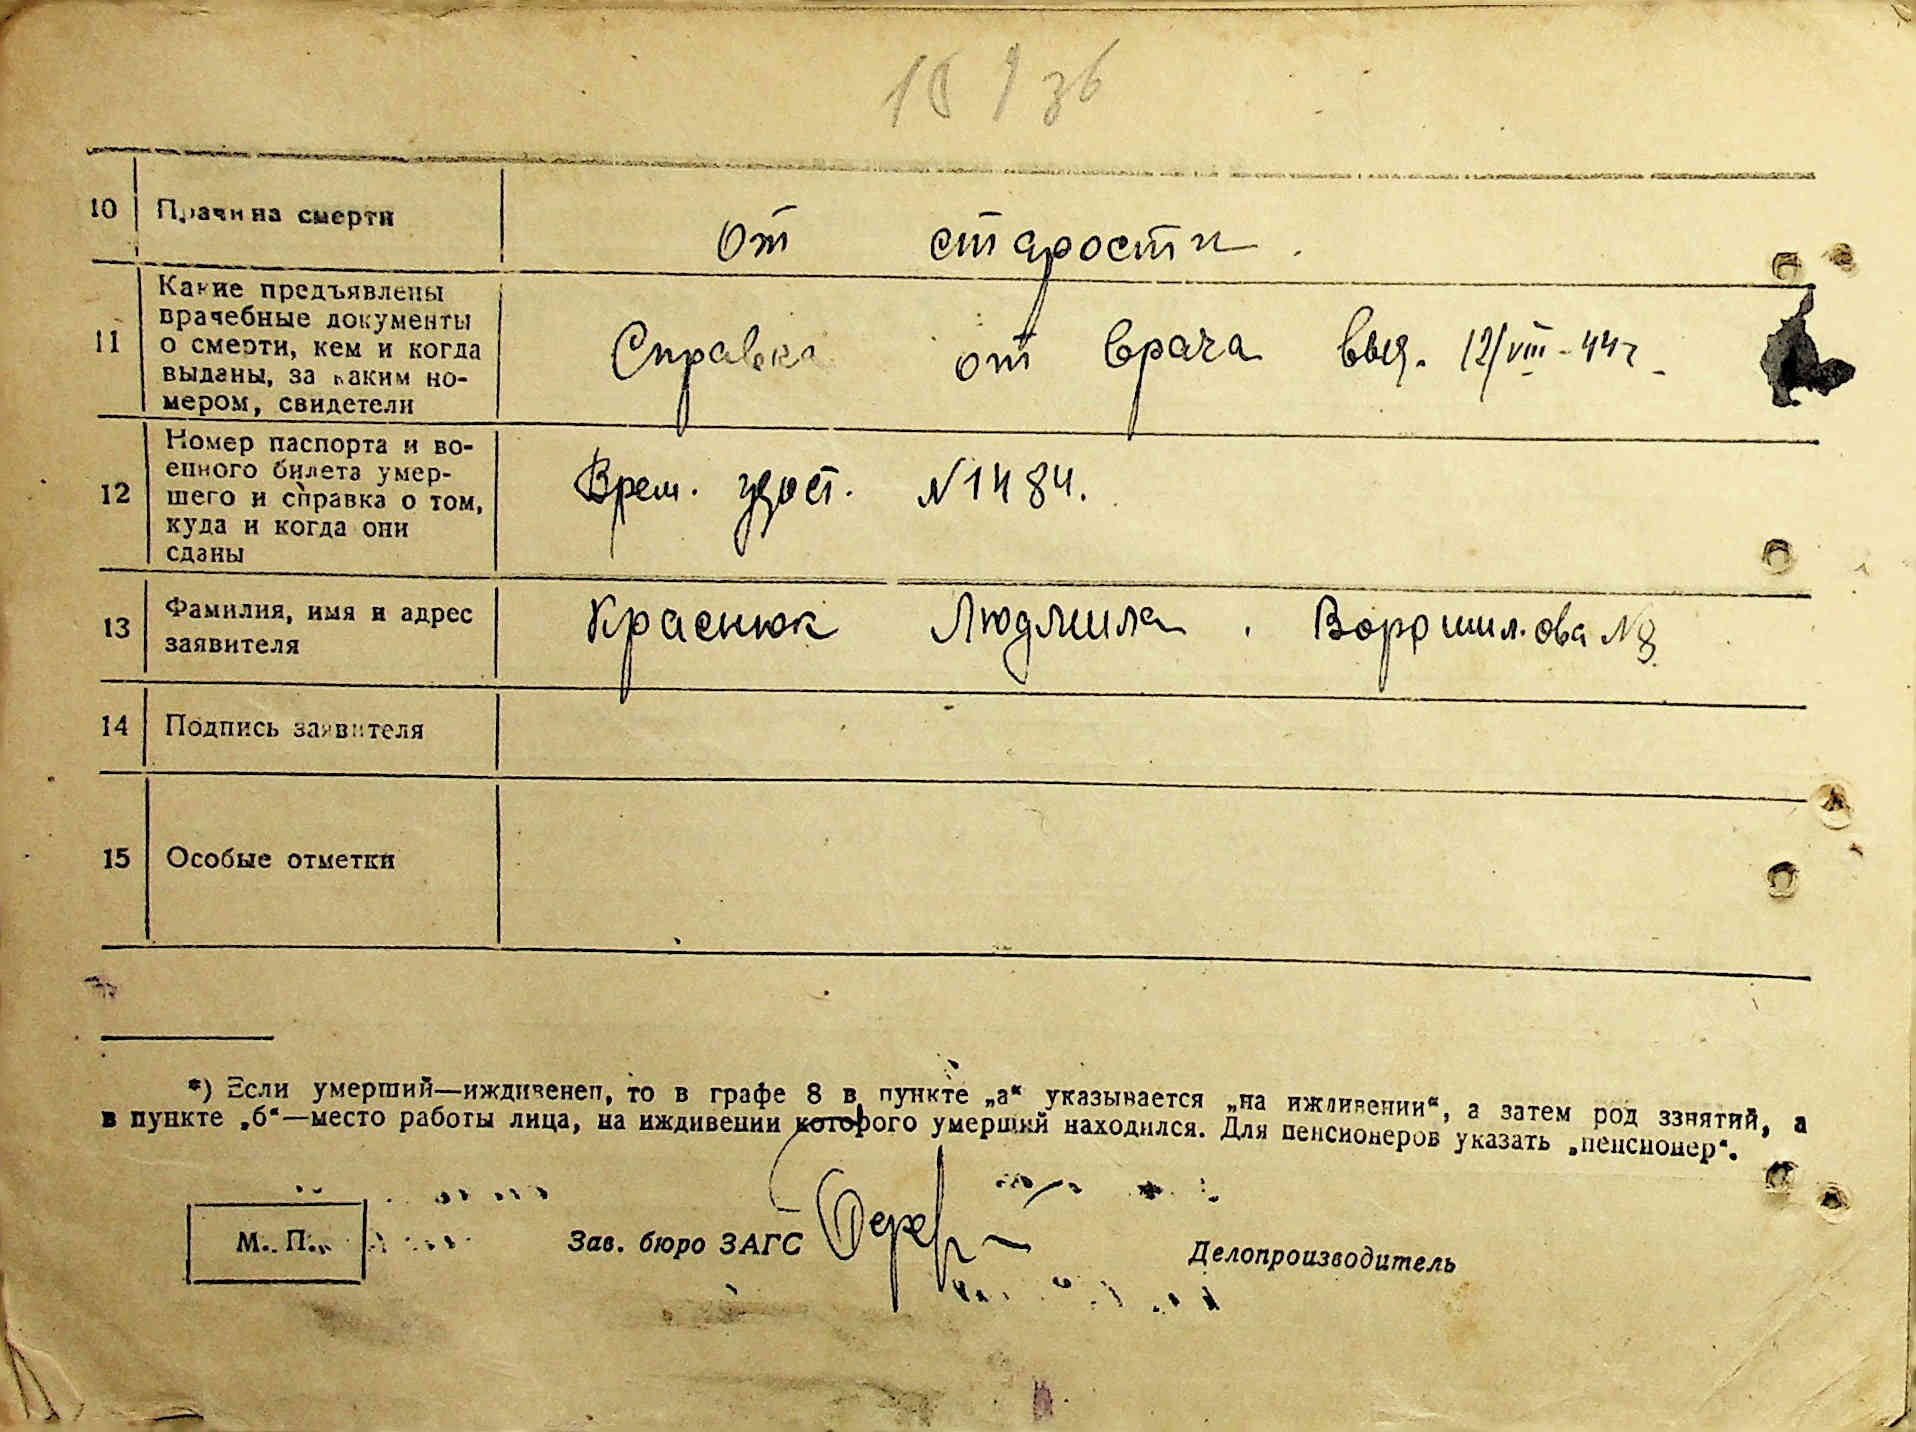 10 Причина смерти
От старости.
11 Какие предъявлены
врачебные документы
о смерти, кем и когда
выданы, за каким но-
мером, свидетели
Справка от врача выд. 12/VIII-44г.
12 Номер паспорта и во-
енного билета умер-
шего и справка о том,
куда и когда они
сданы
Врем. удост. N1484.
13 Фамилия, имя и адрес
заявителя
Краснюк Людмила. Ворошилова N8
14 Подпись заявителя
15 Особые отметки
*) Если умерший—иждивенец, то в графе 8 в пункте „а“ указывается „на иждивении“, а затем род занятий, а
в пункте „б“—место работы лица, на иждивении которого умерший находился. Для пенсионеров указать „пенсионер“.
М. П. Зав. бюро ЗАГС Делопроизводитель